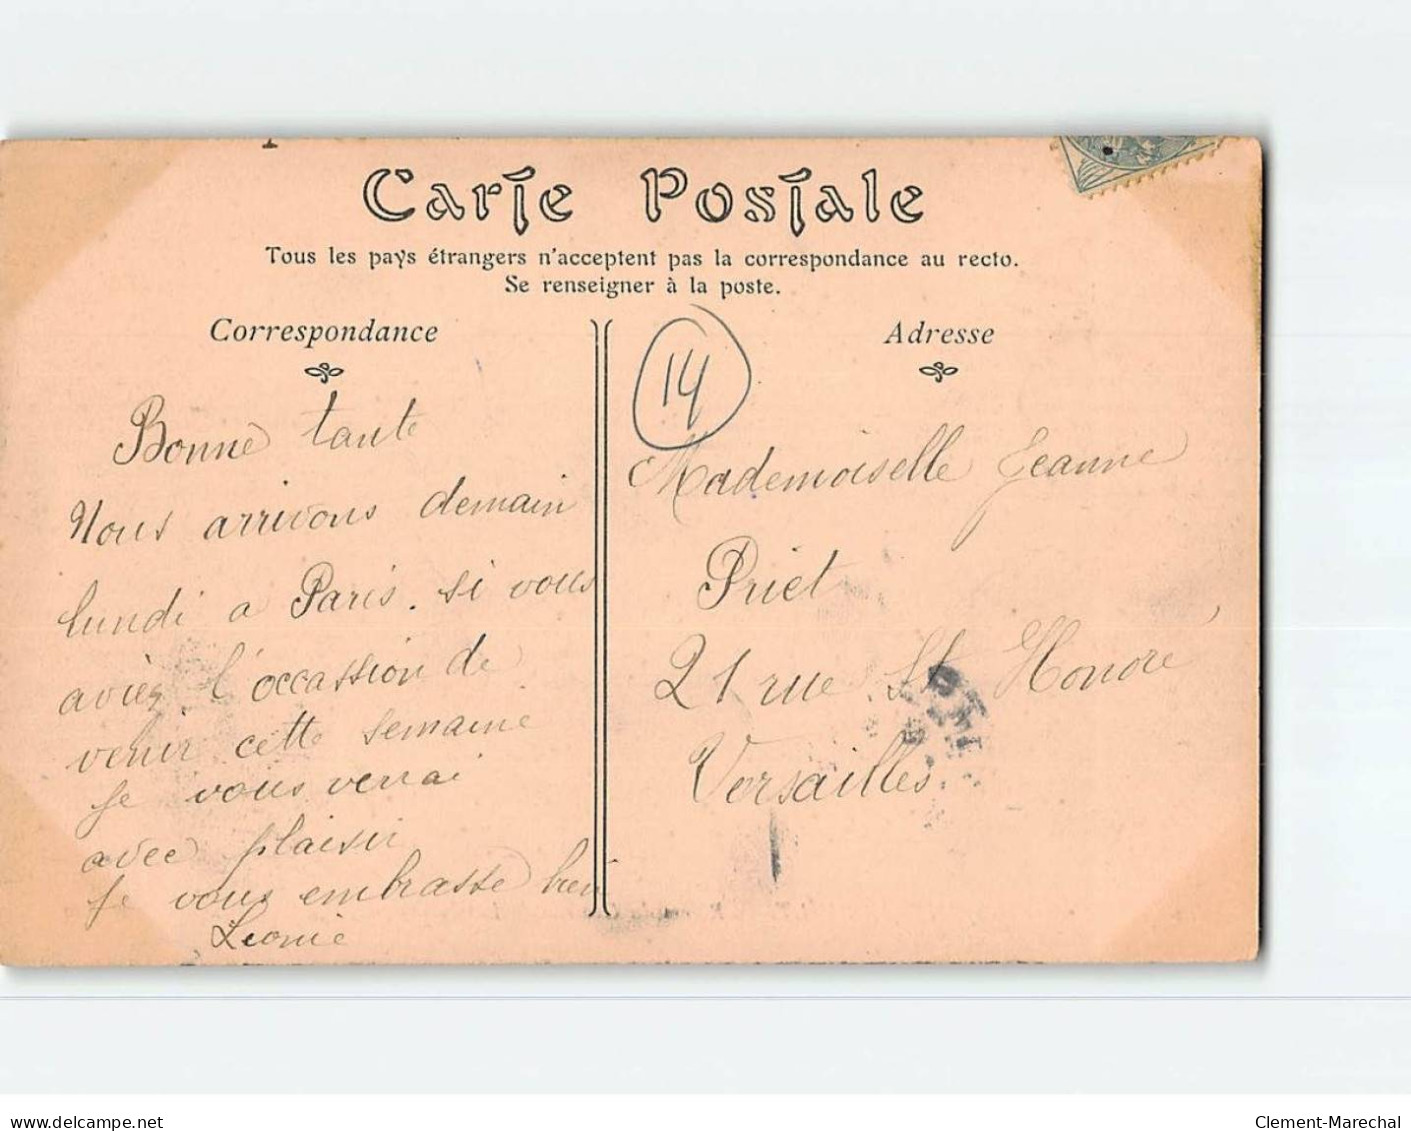 Carte Postale
Tous les pays étrangers n'acceptent pas la correspondance au recto.
Se renseigner à la poste.
Correspondance
Bonne tante
Nous arrivons demain
lundi a Paris. si vous
aviez l'occassion de
venir cette semaine
je vous verrai
avec plaisir
je vous embrasse bien
Leonie
14
Adresse
Mademoiselle Jeanne
Priet
21 rue St Honoré
Versailles.
www.delcampe.net
Clement-Marechal